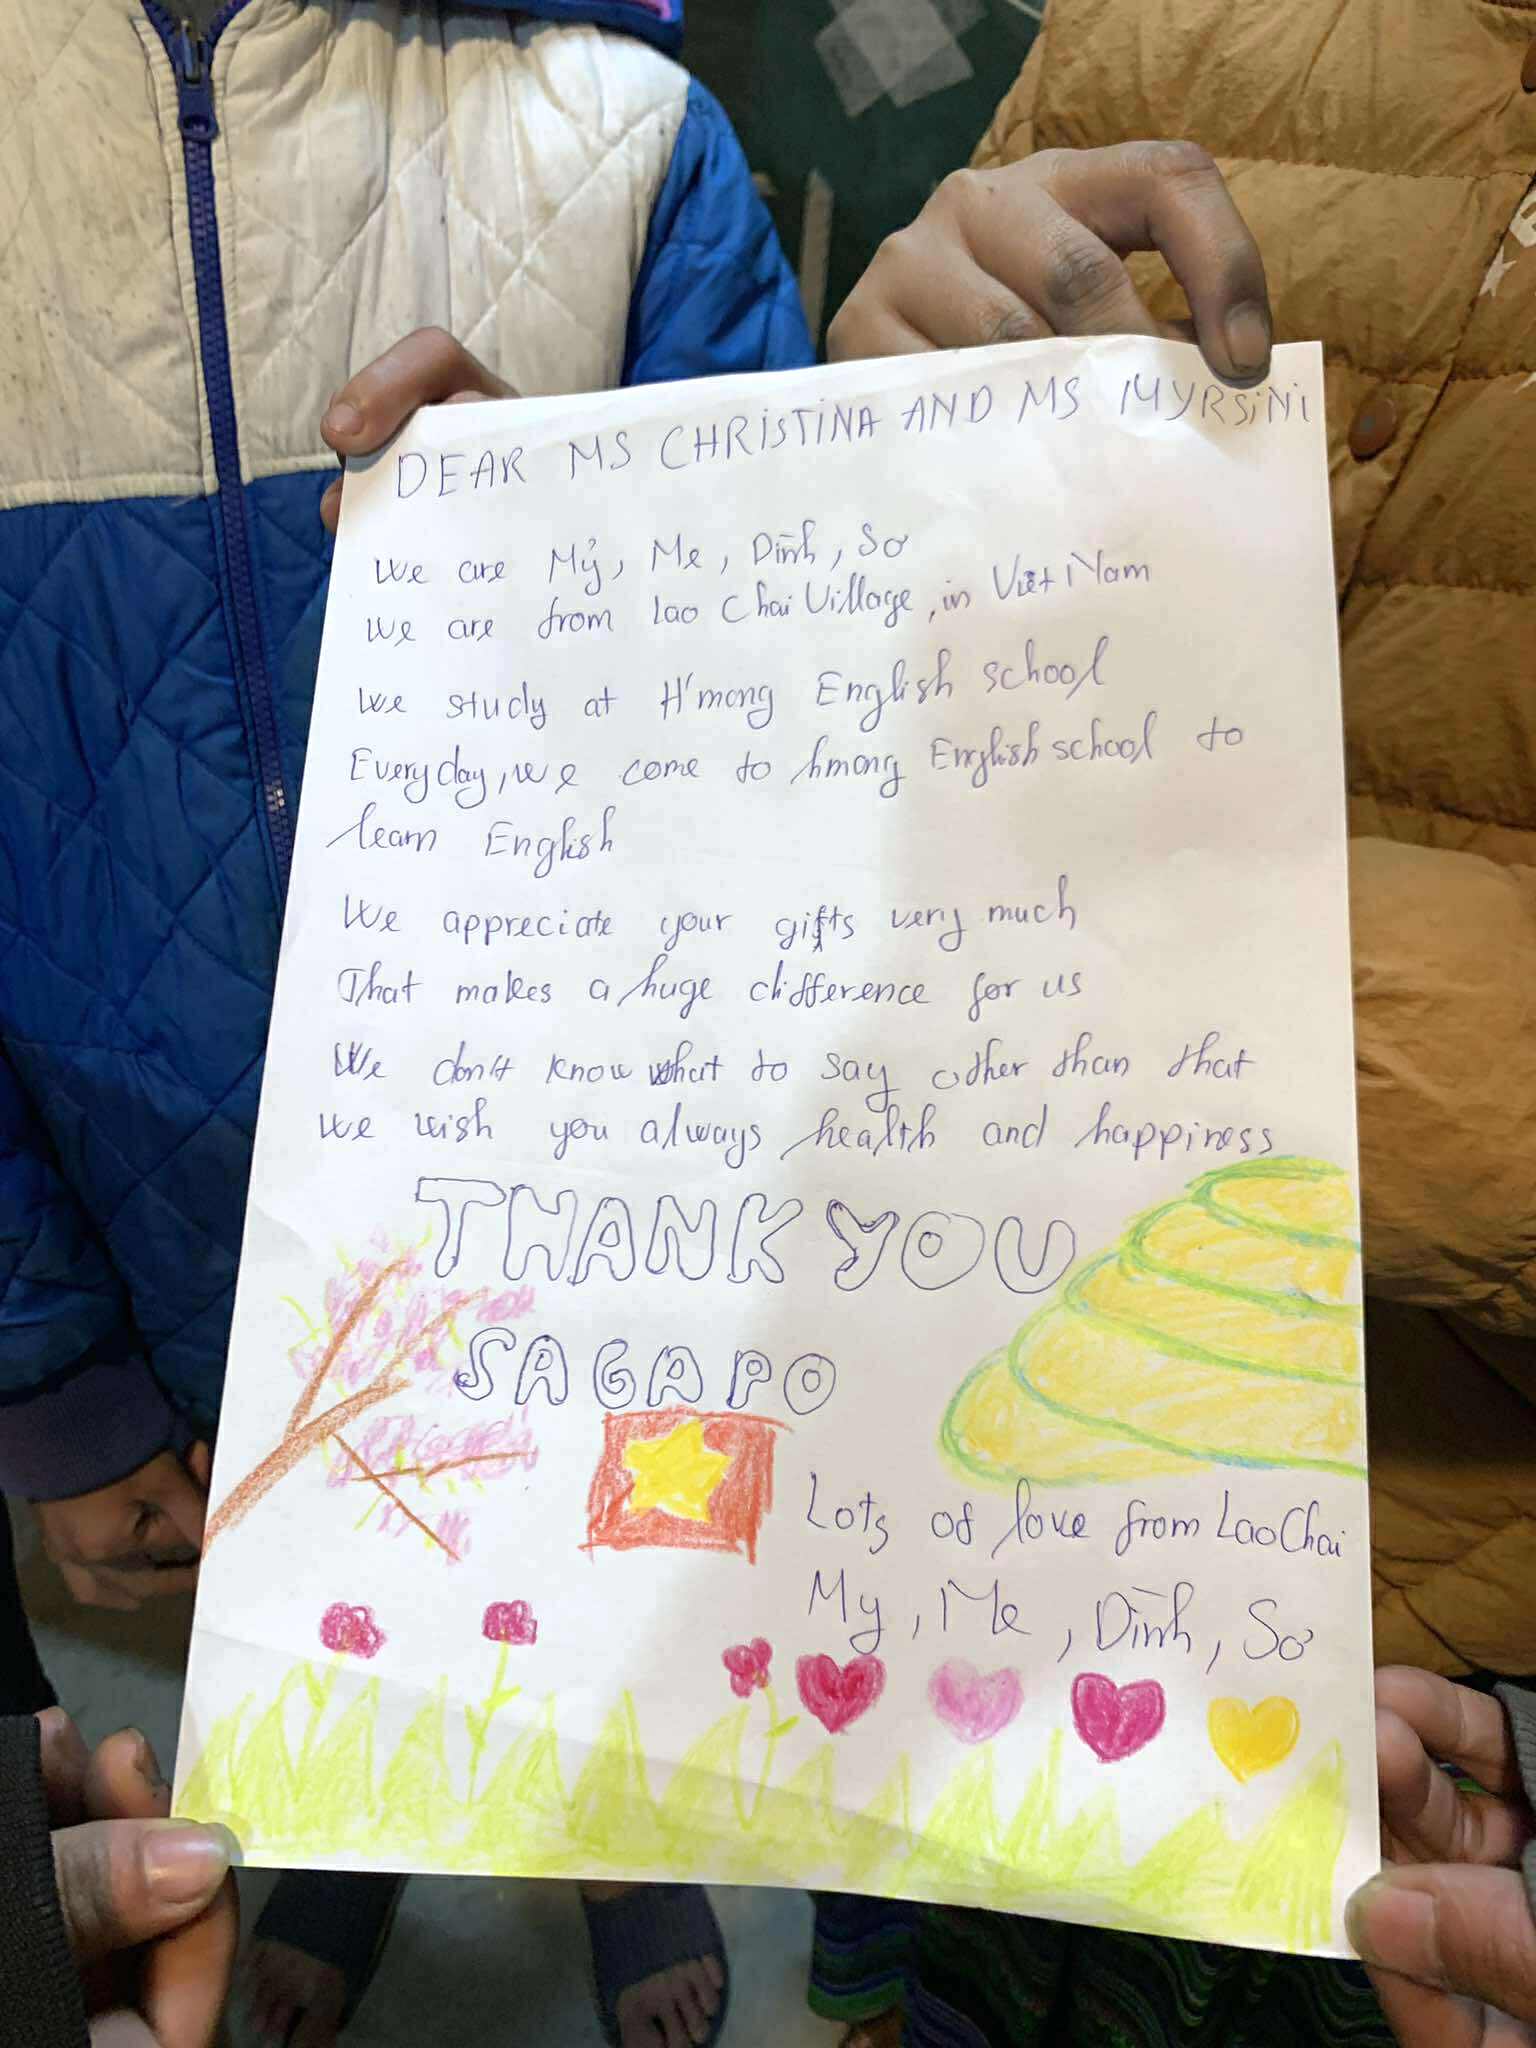 DEAR MS CHRISTINA AND MS MYRSINI
We are Mỷ, Me, Dình, Sơ
We are from Lao Chai Village, in Việt Nam
We study at H'mong English school
Everyday, we come to hmong English school to
learn English
We appreciate your gifts very much
That makes a huge difference for us
We don't know what to say other than that
We wish you always health and happiness
THANK YOU
SAGAPO
Lots of love from Lao Chai
My, Me, Dình, Sơ